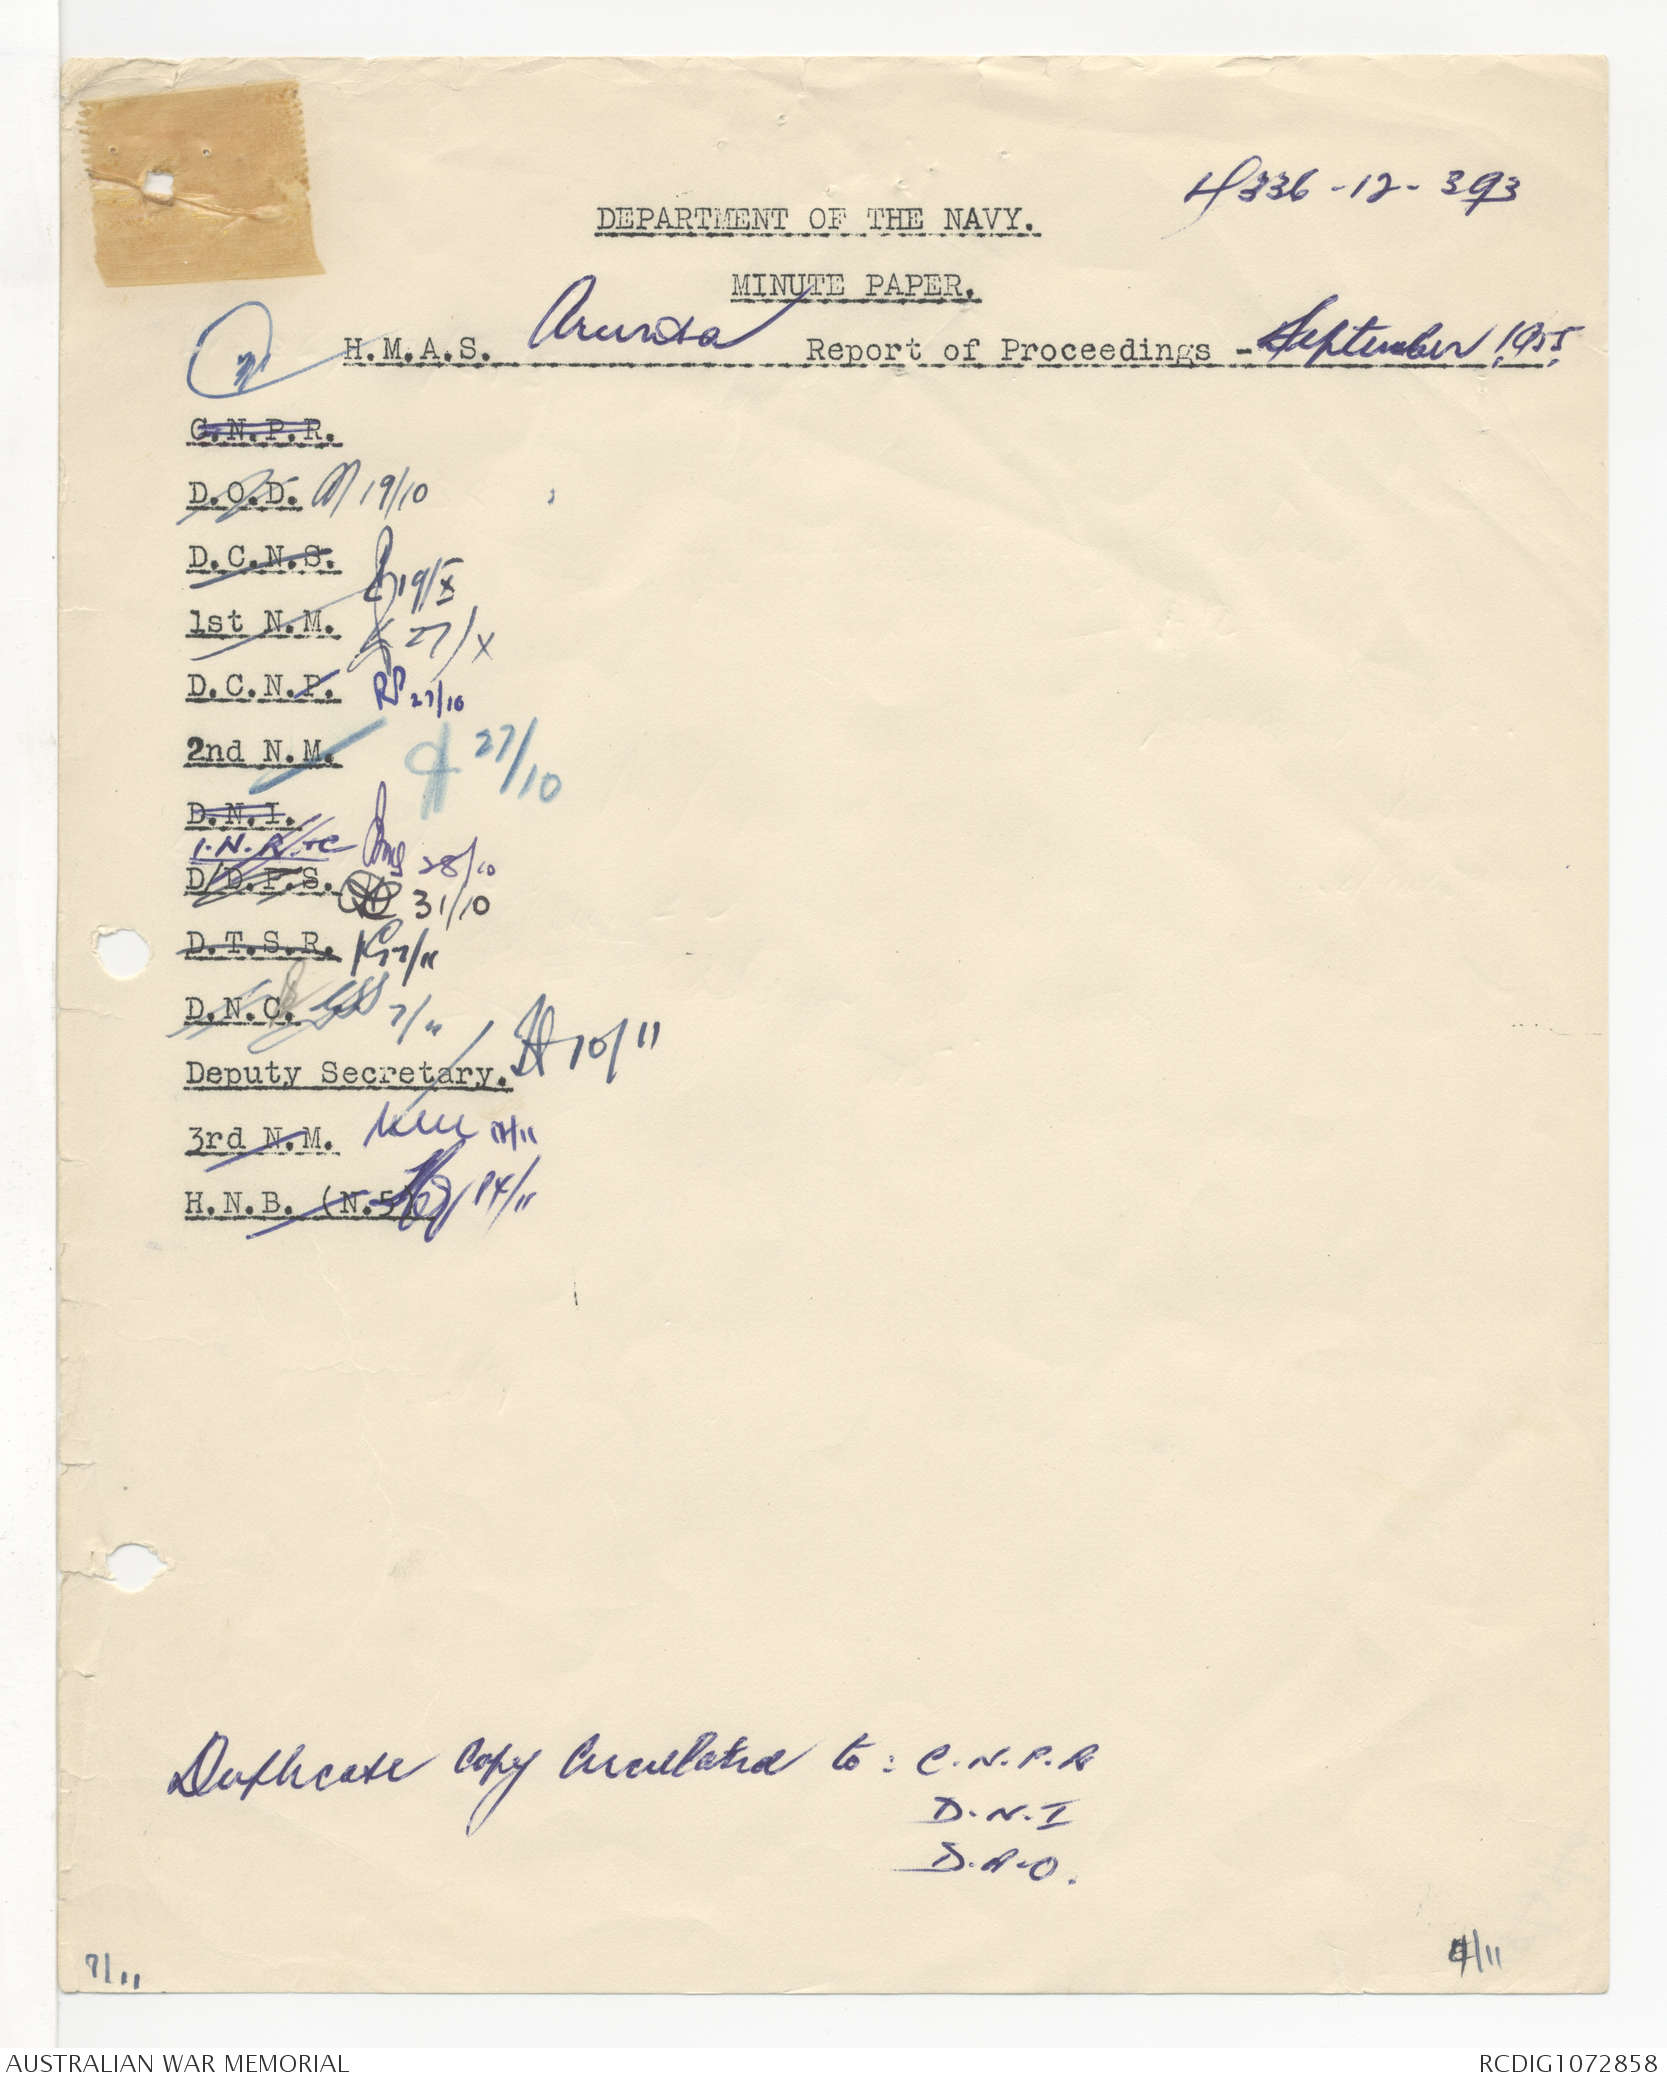 4336-12-393
DEPARTMENT OF THE NAVY.
MINUTE PAPER.
H.M.A.S. Arunta Report of Proceedings - September, 1955.
C.N.P.R.
D.O.D. 19/10
D.C.N.S. 19/X
1st N.M. 27/X
D.C.N.P. 27/10
2nd N.M. 27/10
D.N.I.
28/10
D/D.F.S. 31/10
D.T.S.R. 7/11
D.N.C. 7/11
Deputy Secretary. 10/11
3rd N.M. 11/11
H.N.B. (N.5) 14/11
Duplicate Copy Circulated to: C.N.P.R
D.N.I
7/11
4/11
AUSTRALIAN WAR MEMORIAL
RCDIG1072858